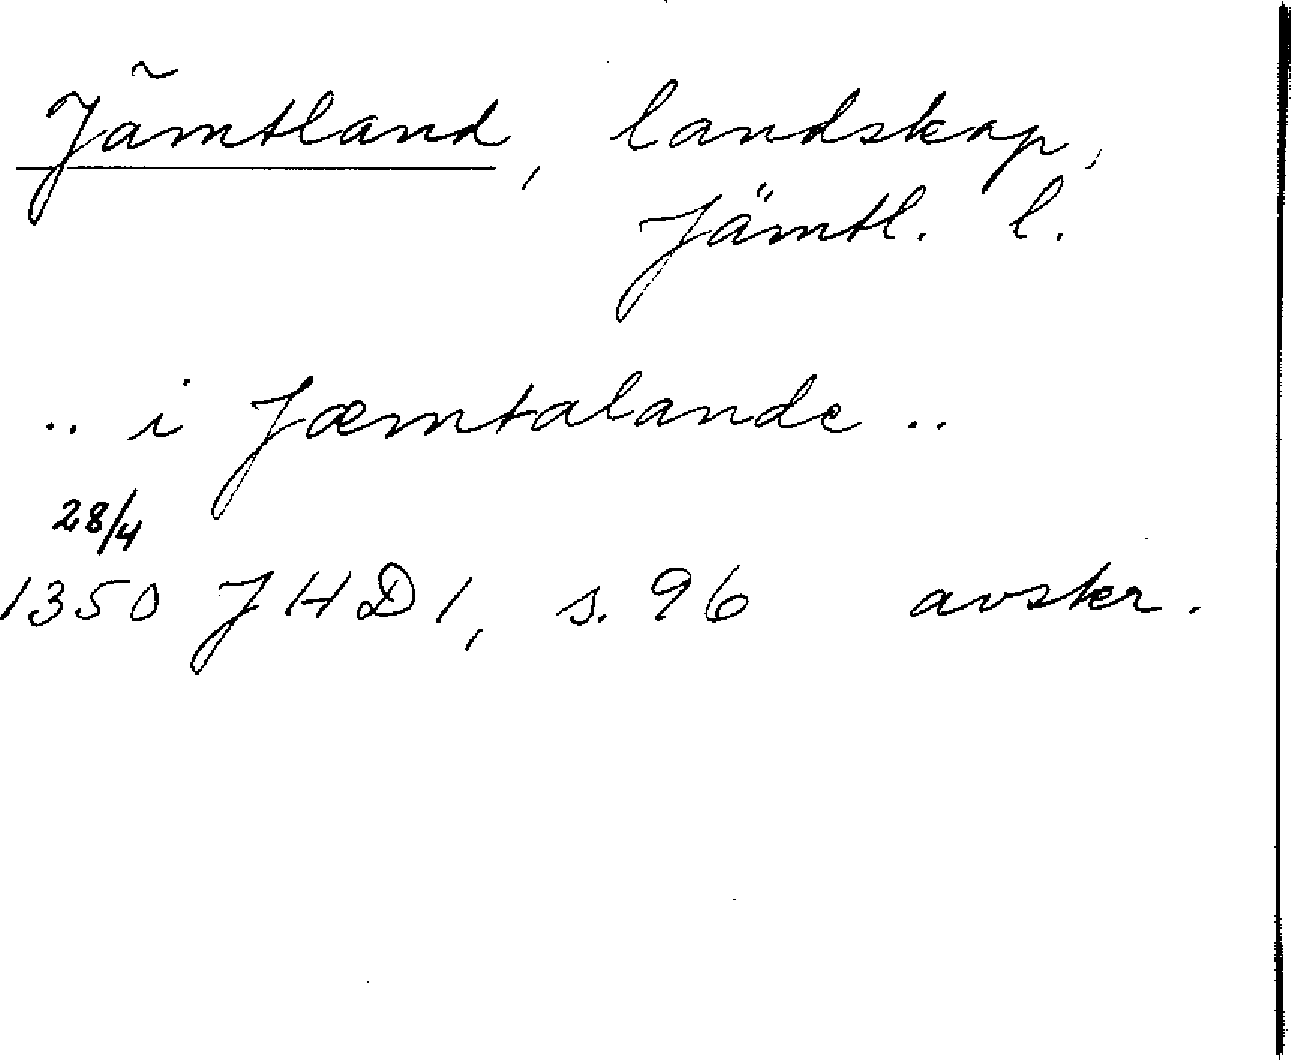 Jämtland, landskap,
Jämtl. l.
.. i Jæmtalande ..
28/4
1350 JHD 1, s. 96 avskr.